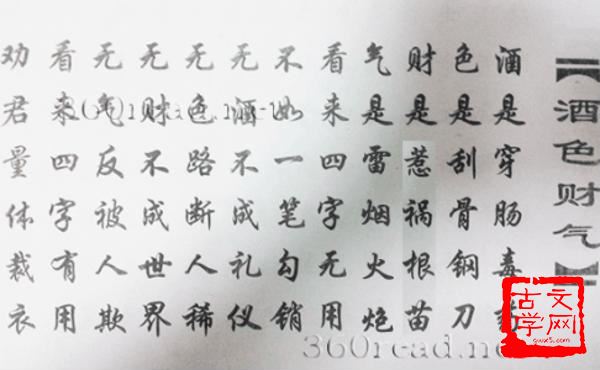 【酒色财气】
酒是穿肠毒药
色是刮骨钢刀
财是惹祸根苗
气是雷烟火炮
看来四字无用
不如一笔勾销
无酒不成礼仪
无色路断人稀
无财不成世界
无气反被人欺
看来四字有用
劝君量体裁衣
古文学网
360read.ne